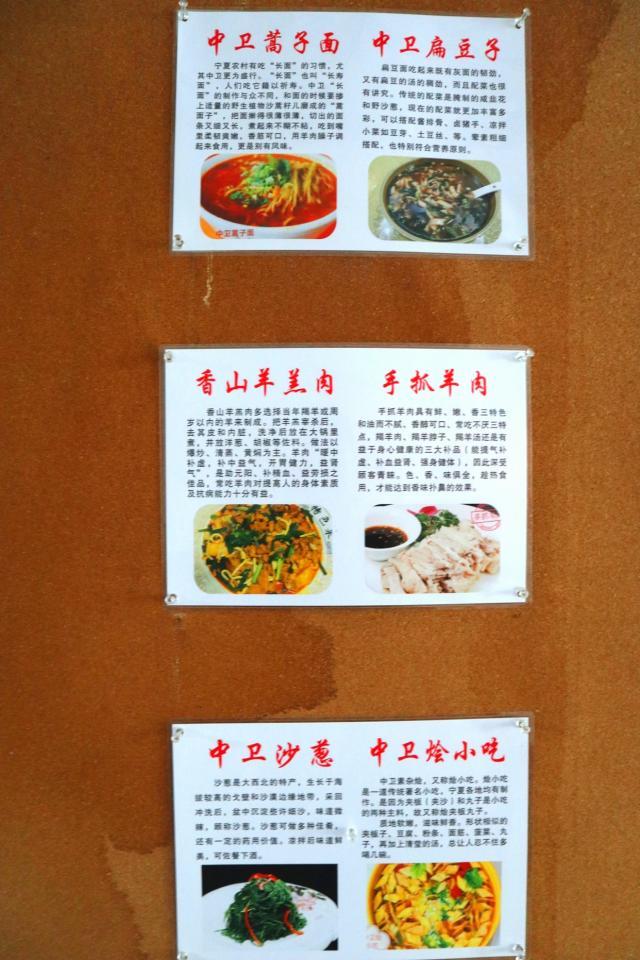 中卫蒿子面
宁夏农村有吃“长面”的习惯，尤
其中卫更为盛行。“长面”也叫“长寿
面”，人们吃它籍以祈寿。中卫“长
面”的制作与众不同，和面的时候要掺
上适量的野生植物沙蒿籽儿磨成的“蒿
面子”，把面擀得很薄很薄，切出的面
条又细又长，煮起来不糊不粘，吃到嘴
里柔韧爽嫩，香筋可口，用羊肉臊子调
起来食用，更是别有风味。
中卫蒿子面
中卫扁豆子
扁豆面吃起来既有灰面的韧劲，
又有扁豆的汤的稠劲，而且配菜也很
有讲究。传统的配菜是腌制的咸韭花
和野沙葱，现在的配菜就更加丰富多
彩，可以搭配酱排骨、卤猪手、凉拌
小菜如豆芽、土豆丝、等。荤素粗细
搭配，也特别符合营养原则。
香山羊羔肉
香山羊羔肉多选择当年羯羊或周
岁以内的羊来制成。把羊羔宰杀后，
去其皮和内脏，洗净后放在大锅里
煮，并放洋葱、胡椒等佐料。做法以
爆炒、清蒸、黄焖为主。羊肉“暖中
补虚，补中益气，开胃健力，益肾
气”，是助元阳、补精血、益劳损之
佳品，常吃羊肉对提高人的身体素质
及抗病能力十分有益。
手抓羊肉
手抓羊肉具有鲜、嫩、香三特色
和油而不腻、香醇可口、常吃不厌三特
点，羯羊肉、羯羊脖子、羯羊汤还是有
益于身心健康的三大补品（能提气补
虚、补血益肾、强身健体），因此深受
顾客青睐。色、香、味俱全，趁热食
用，才能达到香味扑鼻的效果。
中卫沙葱
沙葱是大西北的特产，生长于海
拔较高的戈壁和沙漠边缘地带，采回
冲洗后，盆中沉淀些许细沙，味道微
辣，顾称沙葱。沙葱可做多种佳肴，
还有一定的药用价值。凉拌后味道鲜
美，可佐餐下酒。
中卫烩小吃
中卫素杂烩，又称烩小吃。烩小吃
是一道传统著名小吃，宁夏各地均有制
作。是因为夹板（夹沙）和丸子是小吃
的两种主料，故又称烩夹板丸子。
质地软嫩，滋味鲜香。形状相似的
夹板子，豆腐、粉条、面筋、菠菜、丸
子，再加上清莹的汤，总让人忍不住多
喝几碗。